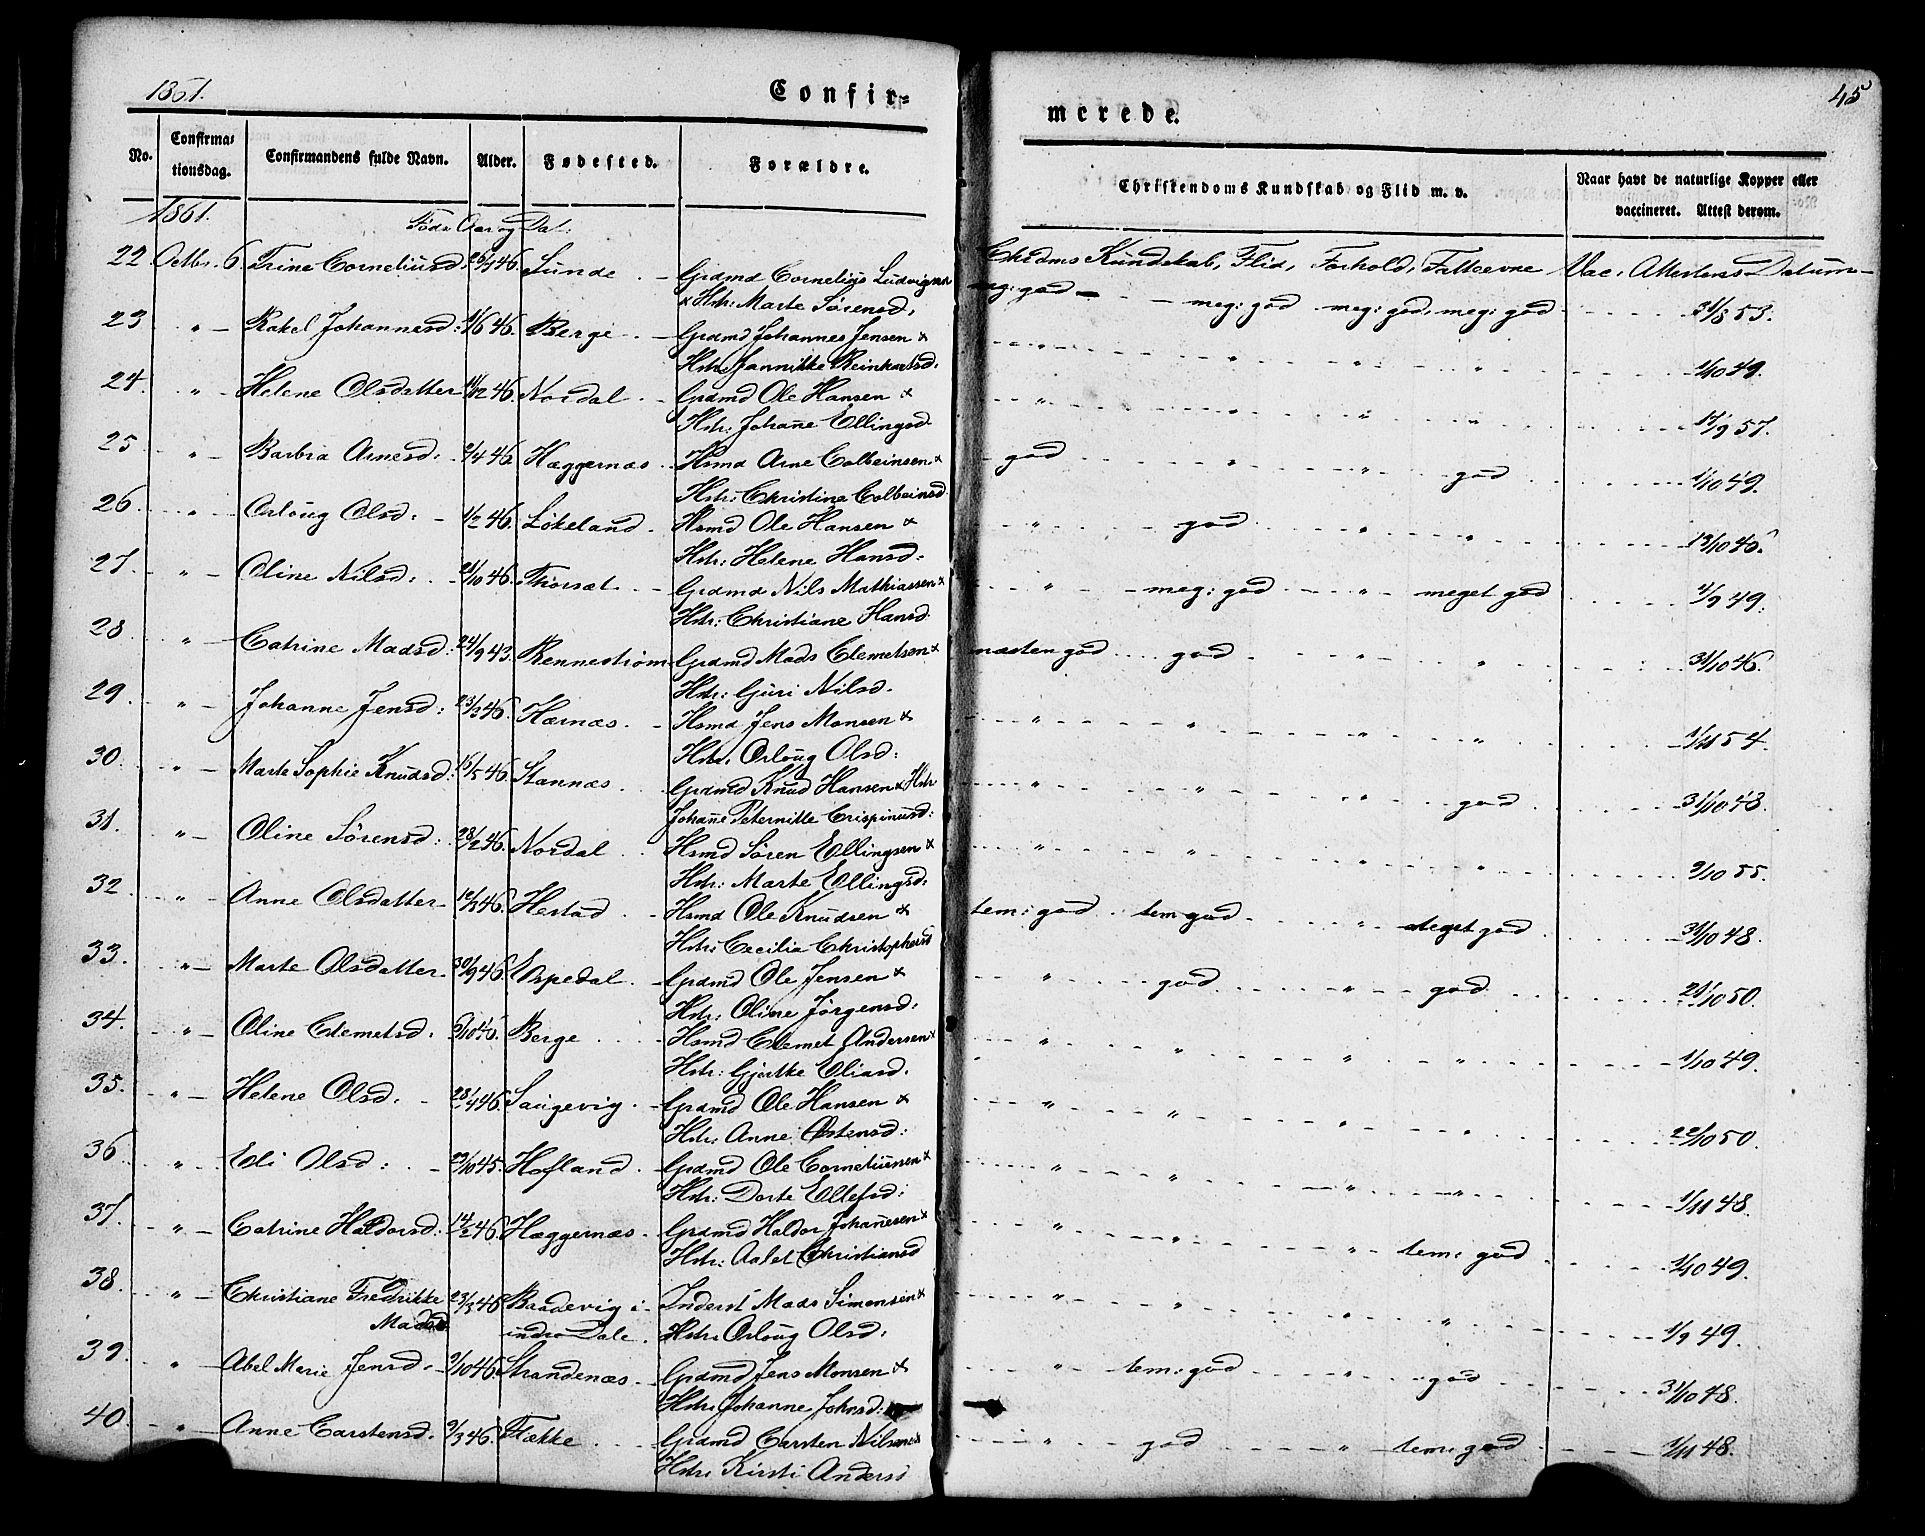 1861.
Confir=
merede.
45
No.
Confirma=
tionsdag.
Confirmandens fulde Navn.
Alder.
Fødested.
Forældre.
Christendoms Kundskab og Flid m. v.
Naar havt de naturlige Kopper eller
vaccineret. Attest derom.
1861.
Føds Aar og Dat.
Chrdms Kundskab, Flid, Forhold, Vac. Attestens Datum
22. Octbr. 6. Trine Corneliusd. Sunde Grdmd Cornelius Ludvigsen
& Hstr: Marte Sørensd. meg: god meg: god meg: god, meg: god
23 " Rakel Johannesd: 1/6 46. Berge Grdmd Johannes Jensen &
Hstr: Jannikke Reinhartsd. " " " " 1/10 49.
24. " Helene Olsdatter 11/12 46. Nordal Grdmd Ole Hansen &
Hstr: Johañe Ellingsd. " " " " 17/9 57.
25 " Barbra Arnesd. Hæggernæs Hsmd Arne Colbeinsen &
Hstr: Christine Colbeinsd. god " " god 1/10 49.
26 " Orloug Olsd: 1/2 46. Løkeland Hsmd Ole Hansen &
Hstr: Helene Hansd: " god " "
27. " Oline Nilsd: 21/10 46. Grdmd Nils Mathiassen &
Hstr: Christiane Hansd. " meg: god " meget god
28 " Catrine Madsd: 24/9 43. Rennestrøm Grdmd Mads Clemetsen &
Hstr: Guri Nilsd. næsten god god " " 31/10 46.
29 " Johanne Jensd: 23/3 46. Hærnæs Hsmd Jens Monsen &
Hstr. Orloug Olsd: " " " " 1/11 54.
30 " Marte Sophie Knudsd: 16/5 46. Stannæs Grdmd Knud Hansen & Hstr
Johañe Peternille Crispinusd: " " " god 31/10 48.
31. " Oline Sørensd: 28/2 46. Nordal Hsmd Søren Ellingsen &
Hstr: Marte Ellingsd: " " " "
32 " Anne Olsdatter Hestad Hsmd Ole Knudsen &
Hstr: Cecilia Christophersd tem: god tem: god " meget god 31/10 48.
33. " Marte Olsdatter 30/9 46. Espedal Grdmd Ole Jensen &
Hstr: Oline Jørgensd: " god " god 21/10 50.
34. " Oline Clemetsd: Berge Hsmd Clemet Andersen &
Hstr: Gjertke Eliasd. " " " " 1/10 49.
35. " Helene Olsd. 28/4 46. Saugevig Grdmd Ole Hansen &
Hstr: Anne Ostensd: " " " " 22/10 50.
36 " Eli Olsd: Hofland Grdmd Ole Corneliussen &
Hstr: Dorte Ellefsd: " " " " 1/11 48.
37. " Catrine Haldorsd: 14/2 46. Hæggernæs Grdmd Haldor Johañesen &
Hstr: Christiansd " " " tem: god 1/10 49.
38. " Christiane Fredrikke 23/3 46 Baadevig i Inderst Mads Simonsen &
Madsd indre Dale. Hstr. Orloug Olsd: " " " " 1/9 49.
39. " Abel Marie Jensd. Strandenæs Grdmd Jens Monsen &
Hstr. Johanne Johnsd: " tem: god " god 31/10 48.
40. " Anne Carstensd. Flekke Grdmd Carsten Nilsen &
Hstr. Kirsti Andersd " god " tem: god 1/11 48.